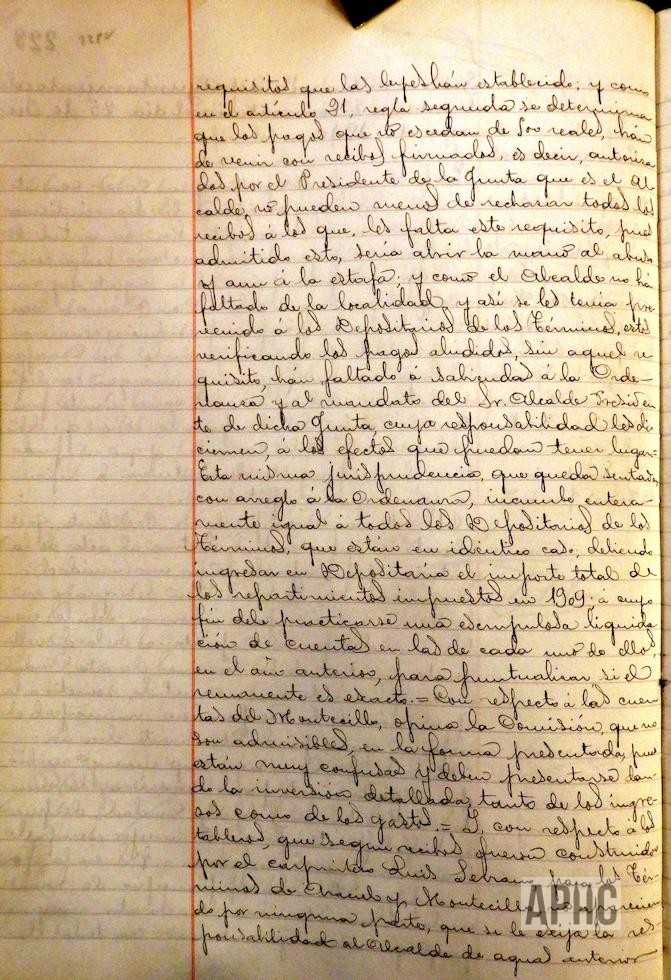 requisitos que las leyes hán establecido; y como
en el artículo 21, regla segunda se determina
que los pagos que nó escedan de 500 reales, hán
de venir con recibos firmados, es decir, autoriza
dos por el Presidente de la Junta que es el Al
calde, nó pueden menos de rechazar todos los
recibos á los que, les falta este requisito, pues
admitido esto, sería abrir la mano al abuso
y aun á la estafa; y como el Alcalde no há
faltado de la localidad, y así se les tenía pre
venido á los Depositarios de los Términos, estos
verificando los pagos aludidos, sin aquel re
quisito, hán faltado á sabiendas á la Orde-
nanza y al mandato del Sr. Alcalde Presiden
te de dicha Junta, cuya responsabilidad les di
ciernen, á los efectos que puedan tener lugar=
Esta misma jurisprudencia, que queda sentada
con arreglo á la Ordenanza, incumbe entera-
mente igual á todos los Depositarios de los
Términos, que están en idéntico caso, debiendo
ingresar en Depositaría el importe total de
los repartimientos impuestos en 1909; á cuyo
fin debe practicarse una escrupulosa liquida
ción de cuentas en las de cada uno de ellos,
en el año anterior, para puntualizar si el
remanente es exacto.= Con respecto á las cuen
tas del Montecillo, opina la Comisión, que no
son admisibles, en la forma presentada, pues
están muy confusas y deben presentarse dan-
do la inversión detallada, tanto de los ingre-
sos como de los gastos.= Y, con respecto á los
tableros, que segun recibos fueron construidos
por el carpintero Luis para los Tér
minos de y Montecillo, no
do por ninguna parte, que se le exija la res
ponsabilidad al Alcalde de aguas anterior
APHC